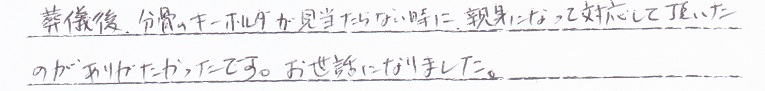 葬儀後、分骨のキーホルダが見当たらない時に、親身になって対応して頂いた
のがありがたかったです。お世話になりました。